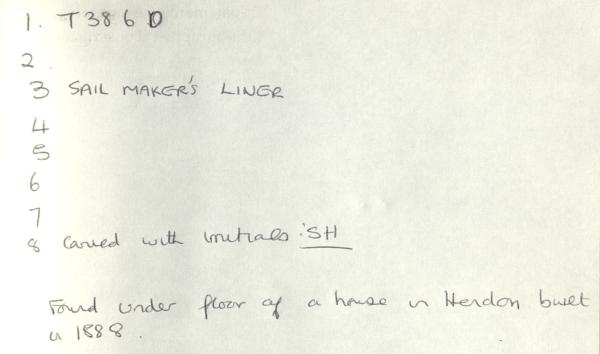 1. T386D
2.
3 SAIL MAKER'S LINER
4
5
6
7
8 Carved with initials :SH
Found under floor of a house in Hendon built
in 1888.